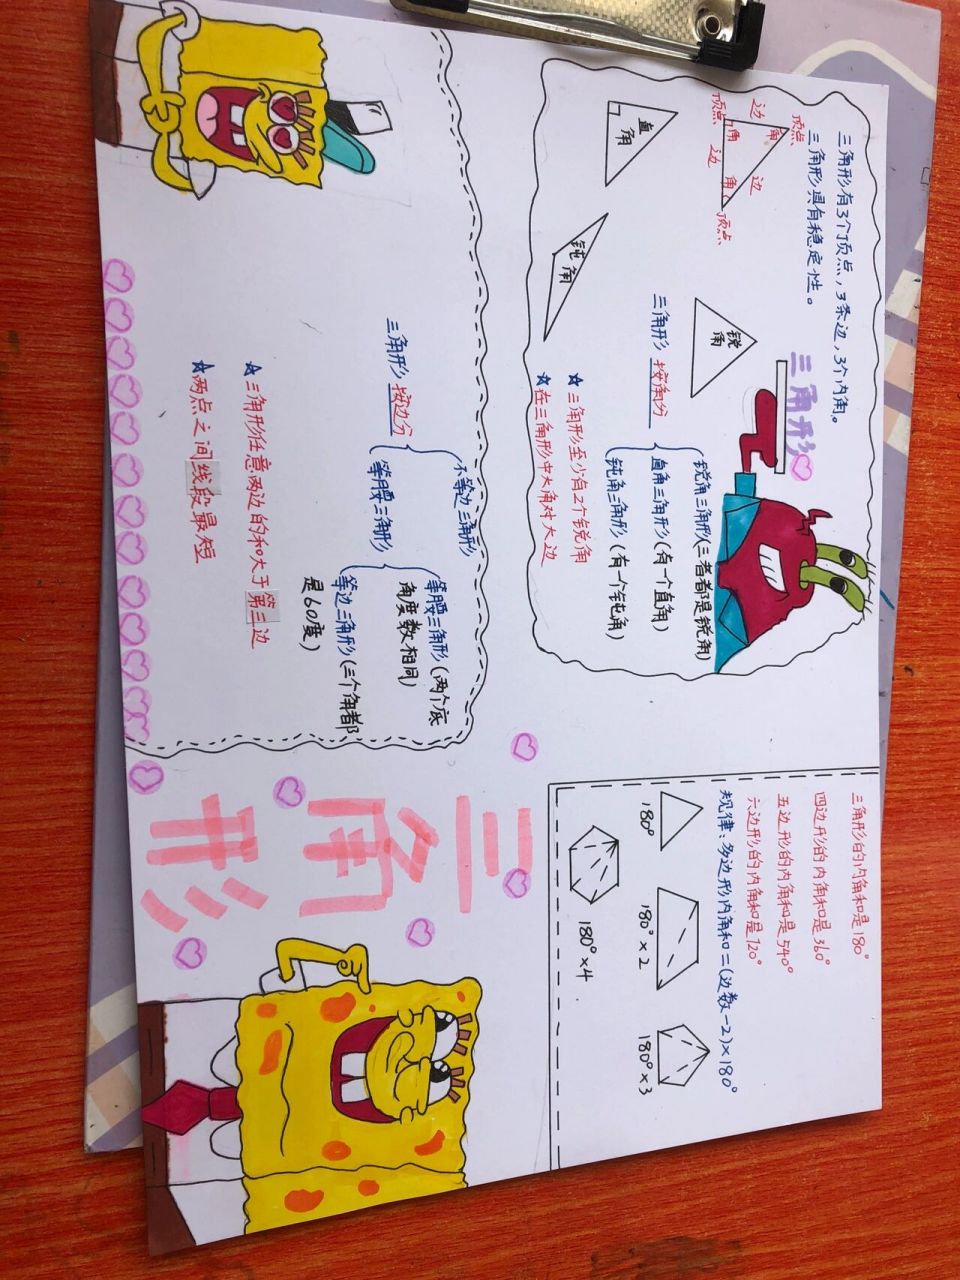 三角形有3个顶点，3条边，3个内角。
三角形具有稳定性。
三角形
顶点
边
角
边
顶点
角
边
角
顶点
直角
锐角
钝角
三角形 按角分
锐角三角形(三者都是锐角)
直角三角形(有一个直角)
钝角三角形(有一个钝角)
☆ 三角形至少有2个锐角
☆ 在三角形中大角对大边
三角形 按边分
不等边三角形
等腰三角形
等腰三角形(两个底
角度数相同)
等边三角形(三个角都
是60度)
☆ 三角形任意两边的和大于第三边
☆ 两点之间线段最短
三角形的内角和是180°
四边形的内角和是360°
五边形的内角和是540°
六边形的内角和是120°
规律：多边形内角和=(边数-2)×180°
180°
180°×2
180°×3
180°×4
三角形